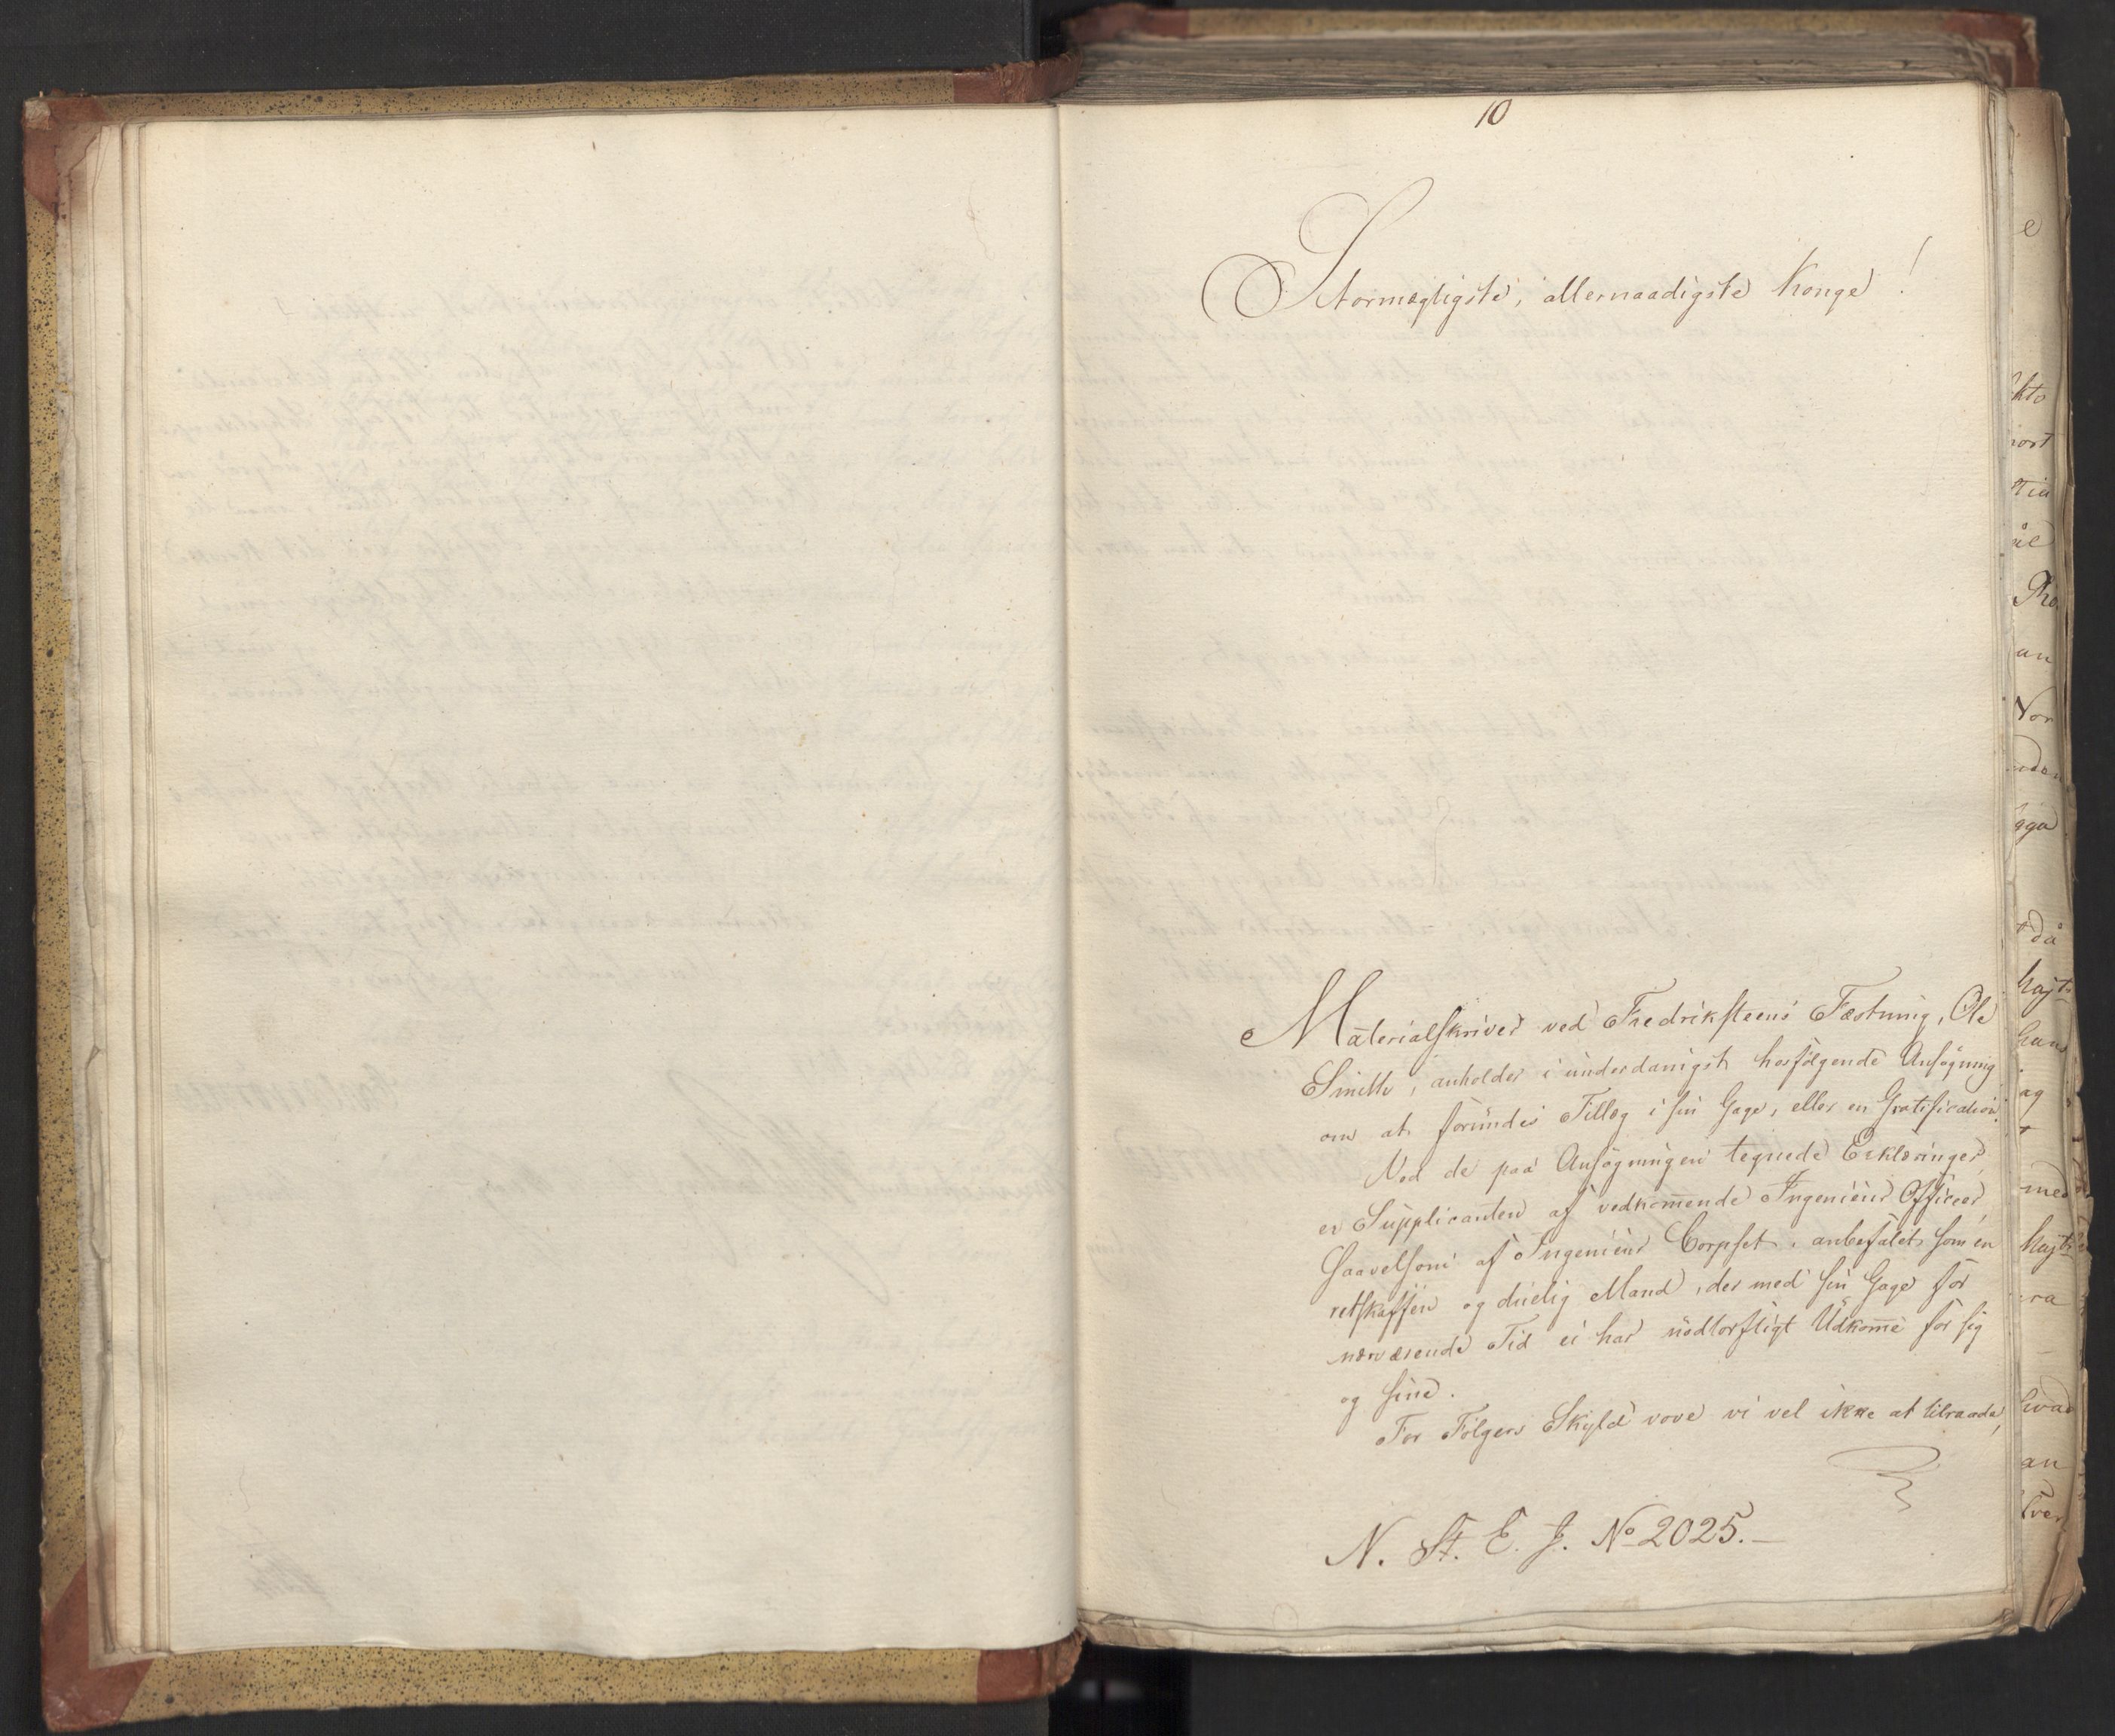 10
Stormægtigste, allernaadigste Konge!
Materialskriver ved Fredriksteens Fæstning, Ole
Smith, anholder i underdanigst hosfølgende Ansøgning
om at forundes Tillæg i sin Gage, eller en Gratification.
Ved de paa Ansøgningen tegnede Erklæringer,
er Supplicanten af vedkommende Ingenieur Officer,
saavelsom af Ingenieur Corpset, anbefalet som en
retskaffen og duelig Mand, der med sin Gage for
nærværende Tid ei har nødtørftigt Udkomme for sig
og sine.
For Følgers Skyld vove vi vel ikke at tilraade,
N. St. E. J. No 2025.—